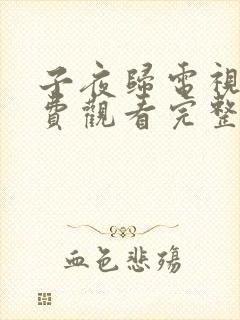 子夜歸電視
費觀看完整
血色悲殤